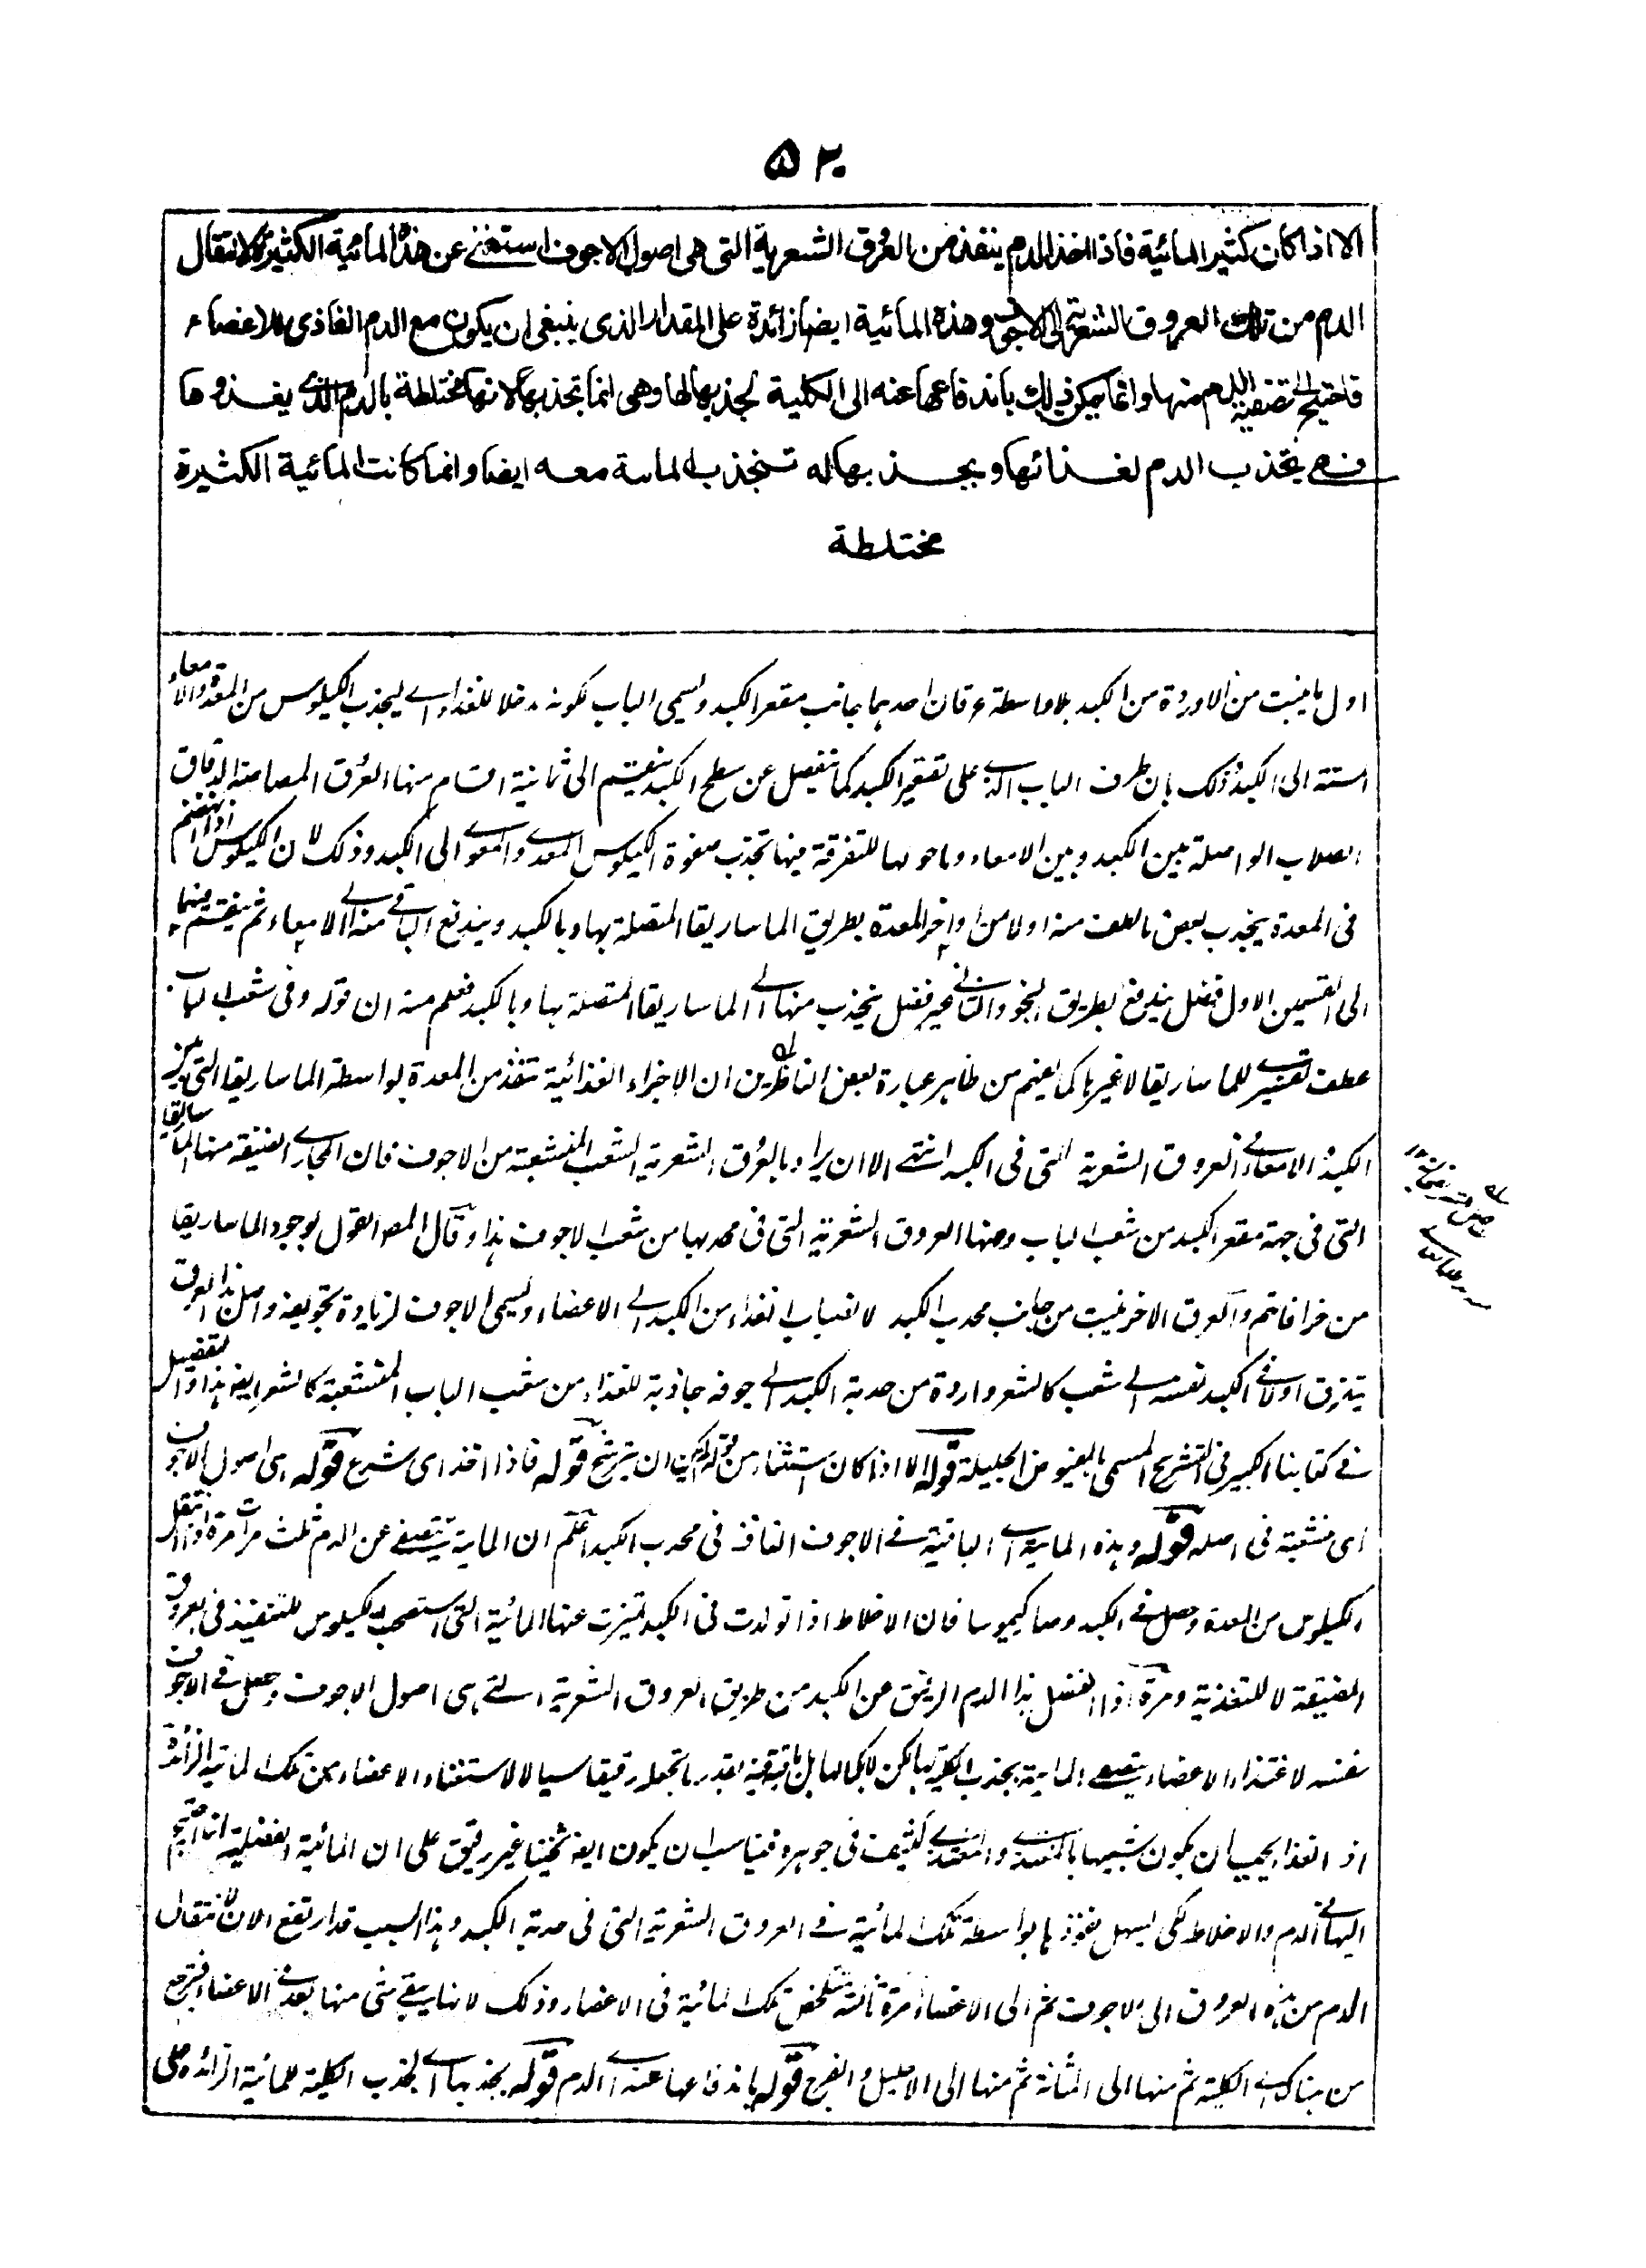 ۵۲
الا اذا كان كثير المائية فاذا اخذ الدم ينفذ من العرق الشعرية التى هى اصول الاجوف استغنى عن هذه المائية الكثيرة لانتقال
الدم من تلك العروق الشعرية الى الاجوف وهذه المائية ايضا زائدة على المقدار الذى ينبغى ان يكون مع الدم الغاذى للاعضاء
فاحتيج الى تصفية الدم منها وانما يمكن ذلك باندفاعها عنه الى الكلية لجذبها لها وهى انما تجذبها لانها مختلطة بالدم الذى يغذوها
فهى تجذب الدم لغذائها وبجذبها له تنجذب المائية معه ايضا وانما كانت المائية الكثيرة
مختلطة
اول ما ينبت من الاوردة من الكبد بلا واسطة عرقان احدهما بجانب مقعر الكبد ويسمى الباب لكونه مدخلا للغذاء اے ليجذب الكيلوس من المعدة والامعاء
الستة الى الكبد وذلك بان طرف الباب الذى على تقعير الكبد كما تنفصل عن سطح الكبد ينقسم الى ثمانية اقسام منها العرق المصاصة الدقاق
الصلاب الواصلة بين الكبد وبين الامعاء وما حولها للتفرقة فيها تجذب صفوة الكيلوس المعدے والمعوے الى الكبد وذلك لان الكيلوس اذا انهضم
فى المعدة ينجذب بعض ما لطف منه اولا من اواخر المعدة بطريق الماساريقا المتصلة بها وبالكبد ويندفع الباقے منه الى الامعاء ثم ينقسم فيها
الى القسمين الاول فضل يندفع بطريق النجو والثانے غير فضل ينجذب منها الے الماساريقا المتصلة بها وبالكبد فعلم منه ان قوله وفى شعب الباب
عطف تفسير للماساريقا لا غيرها كما يفهم من ظاهر عبارة بعض الناظرين ان الاجزاء الغذائية تنفذ من المعدة بواسطة الماساريقا التى بين
الكبد والامعاء فى العروق الشعرية التى فى الكبد انتهے الا ان يراد بالعرق الشعرية الشعب المنشعبة من الاجوف فان المجارے الضيقة منها الماساريقا
التى فى جهة مقعر الكبد من شعب الباب ومنها العروق الشعرية التى فى محدبها من شعب الاجوف هذا وقال المص القول بوجود الماساريقا
من خرافاتهم والعرق الاخر ينبت من جانب محدب الكبد لانصباب الغذاء من الكبد الے الاعضاء ويسمى الاجوف لزيادة تجويفه واصل هذا العرق
يتفرق اولا فى الكبد نفسه الے شعب كالشعر واردة من حدبة الكبد الے جوفه جاذبة للغذاء من شعب الباب المنشعبة كالشعر ايضا هذا والتفصيل
فے كتابنا الكبير فى التشريح المسمى بالفيوض الجليلة قوله الا اذا كان استثناء من قوله ان يترشح قوله فاذا اخذ اى شرع قوله هى اصول الاجوف
اى منشبة فى اصله قوله وهذه المائية اے الباقية فے الاجوف النافذ فى محدب الكبد اعلم ان المائية يتصفے عن الدم ثلث مرات مرة اذا انتقل
الكيلوس من المعدة وحصل فے الكبد وصار كيموسا فان الاخلاط اذا تولدت فى الكبد تميزت عنها المائية التى استصحب الكيلوس للتنفيذ فى العروق
الضيقة لا للتغذية ومرة اذا انفصل هذا الدم الرقيق عن الكبد من طريق العروق الشعرية التے هى اصول الاجوف وحصل فے الاجوف
نفسه لاغتذاء الاعضاء يتصفے المائية بجذب الكلية لها لكن لا بكمالها بل ما بقى فيه بقدر ما تجعله رقيقا سيالا لاستغناء الاعضاء عن تلك المائية الزائدة
اذ الغذاء يجب ان يكون شبيها بالمغتذے والمغتذے كثيف فى جوهره فيناسب ان يكون ايضا ثخينا غير رقيق على ان المائية الفضلية انما احتيج
اليها فے الدم والاخلاط لكى يسهل نفوذها بواسطة تلك المائية فے العروق الشعرية التى فى حدبة الكبد وهذا السبب قد ارتفع الان لانتقال
الدم من هذه العروق الى الاجوف ثم الى الاعضاء ومرة ثالثة تتخلص تلك المائية فى الاعضاء وذلك لانها يبقے شئ منها بعد فے الاعضاء فترجع
من هناك الے الكلية ثم منها الى المثانة ثم منها الى الاحليل والفرج قوله باندفاعها عنه اے الدم قوله بجذبها اے الجذب الكلية للمائية الزائدة على